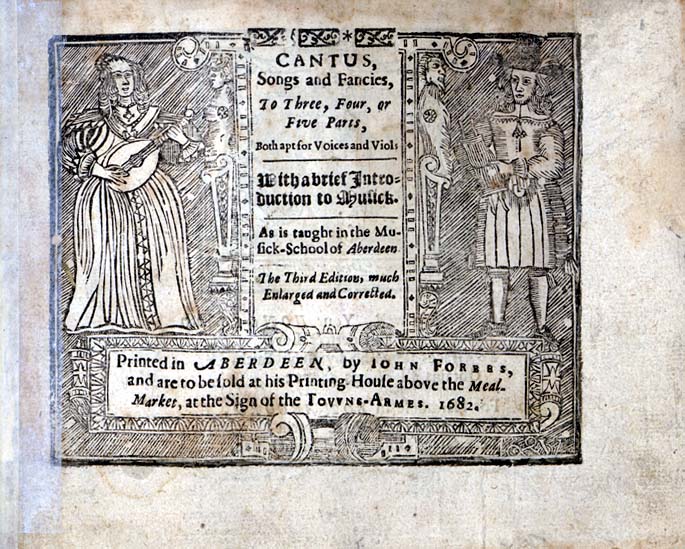 CANTUS,
Songs and Fancies,
To Three, Four, or
Five Parts,
Both apt for Voices and Viols
With a brief Intro-
duction to Musick.
As is taught in the Mu-
sick-School of Aberdeen
The Third Edition, much
Enlarged and Corrected.
Printed in ABERDEEN, by IOHN FORBES,
and are to be sold at his Printing-House above the Meal-
Market, at the Sign of the TOVVNS-ARMES. 1682.